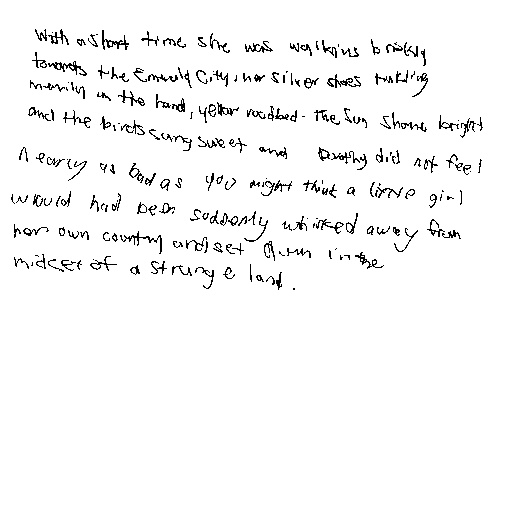 With a short time she was walking briskly
towards the Emerald City, her silver shoes tinkling
merrily on the hard, yellow roadbed. The sun shone bright
and the birds sang sweet and Dorothy did not feel
nearly as bad as you might think a little girl
would had been suddenly whisked away from
her own country and set down in the
midst of a strange land.